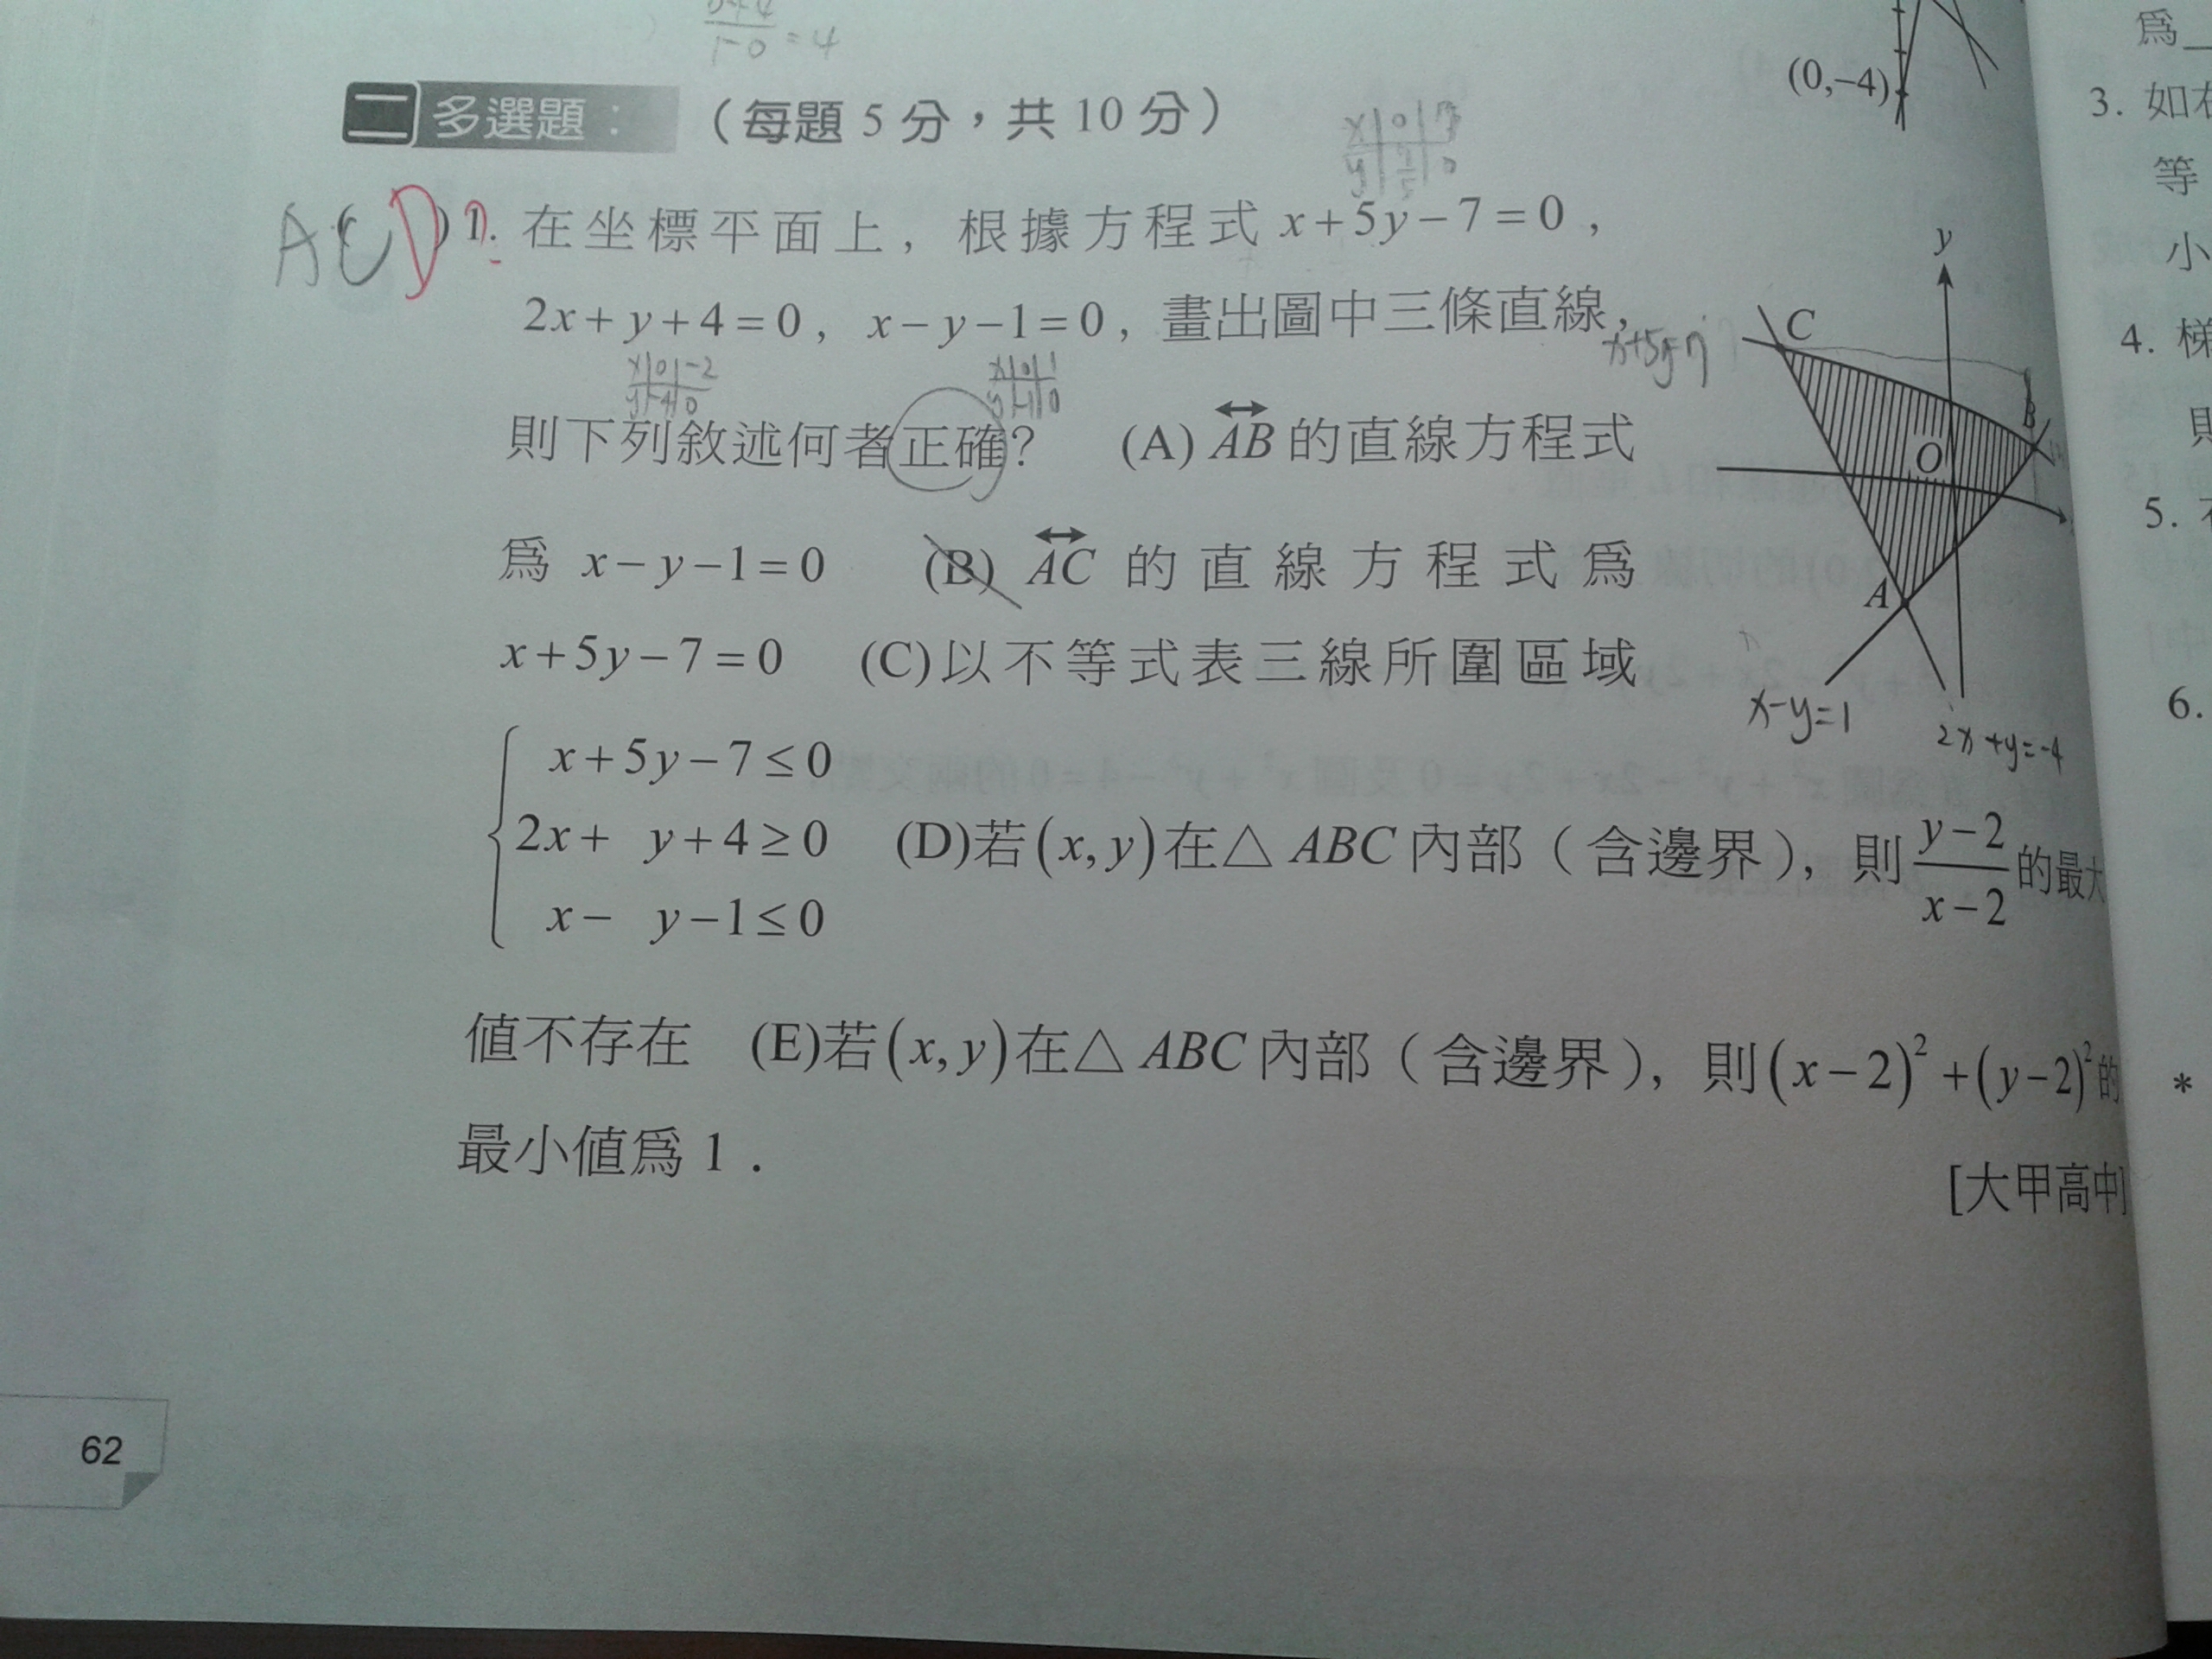 1-0 = 4
(0,-4)
爲
3. 如
等
小
4. 梯
5.
6.
*
二 多選題：（每題 5 分，共 10 分）
x 0 7
y 7/5 0
ACD ( ) 1. 在坐標平面上，根據方程式 x+5y-7=0，
2x+y+4=0，x-y-1=0，畫出圖中三條直線，
x 0 -2
y -4 0
x 0 1
y -1 0
則下列敘述何者正確？ (A) AB 的直線方程式
爲 x-y-1=0 (B) AC 的直線方程式爲
x+5y-7=0 (C)以不等式表三線所圍區域
x+5y-7≤0
2x+ y+4≥0 (D)若(x,y)在△ABC內部（含邊界），則 (y-2)/(x-2) 的最大
x- y-1≤0
值不存在 (E)若(x,y)在△ABC內部（含邊界），則(x-2)²+(y-2)²的
最小值爲 1．
[大甲高中]
y
C
x+5y=7
B
O
A
x-y=1
2x+y=-4
62